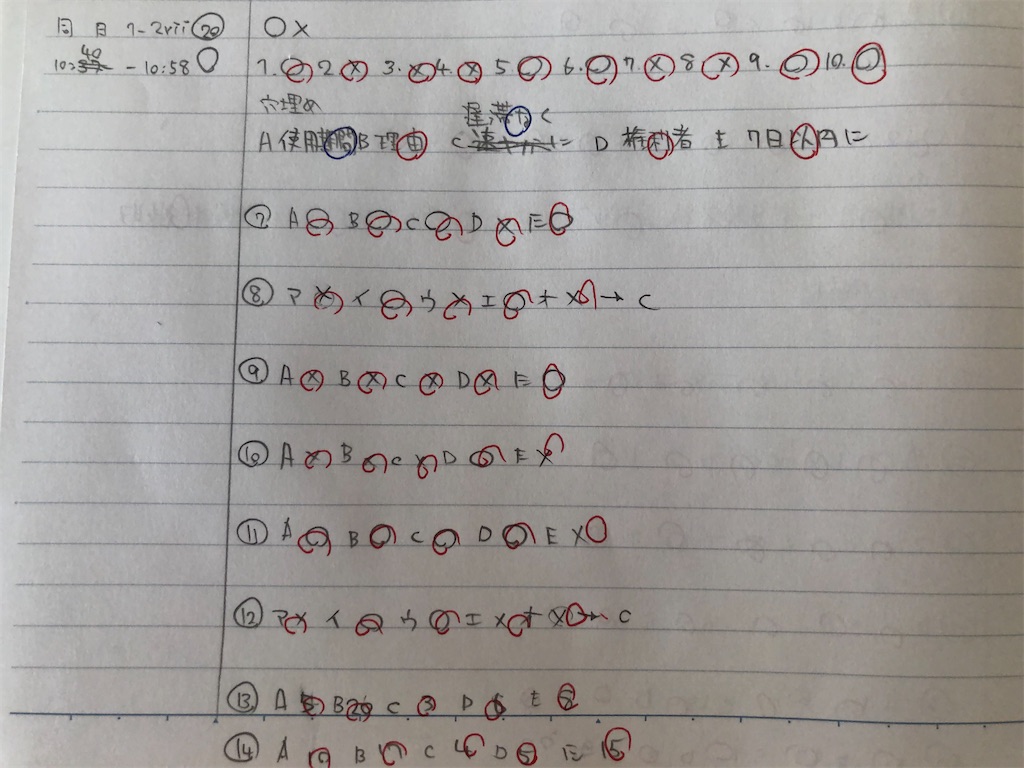 同 日 1-2vii ⑳ ○×
10:40 - 10:58 ○
1.○ 2.× 3.× 4.× 5.○ 6.○ 7.× 8× 9.○ 10.○
穴埋め
遅滞なく
A 使用期間 B 理由 C 速やかに D 権利者 E 7日以内に
⑦ A ○ B ○ C ○ D × E ○
⑧ ア × イ ○ ウ × エ ○ オ × → C
⑨ A × B × C × D × E ○
⑩ A × B ○ C × D ○ E ×
⑪ A ○ B ○ C ○ D ○ E ×
⑫ ア × イ ○ ウ ○ エ × オ × → C
⑬ A B 20 C 3 D 6 E 2
⑭ A B C 4 D 5 E 15